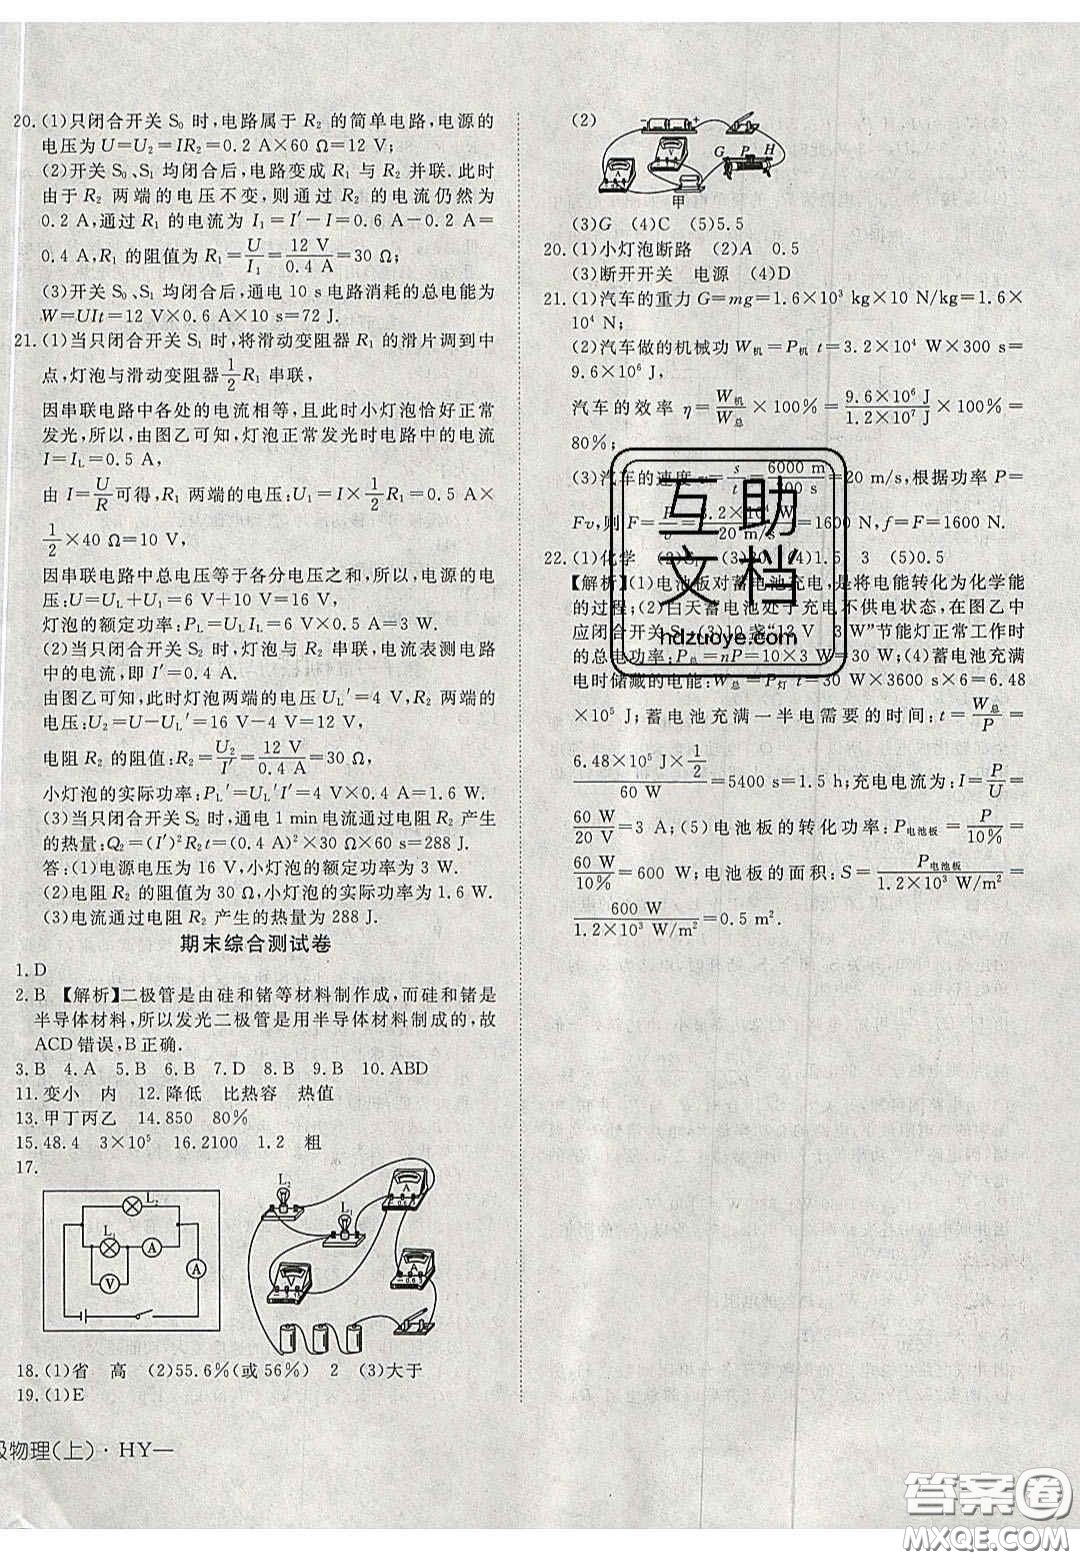 20.(1)只闭合开关 S₀ 时,电路属于 R₂ 的简单电路,电源的
电压为 U=U₂=IR₂=0.2 A×60 Ω=12 V;
(2)开关 S₀、S₁ 均闭合后,电路变成 R₁ 与 R₂ 并联.此时
由于 R₂ 两端的电压不变,则通过 R₂ 的电流仍然为
0.2 A,通过 R₁ 的电流为 I₁=I′−I=0.6 A−0.2 A=
0.4 A,R₁ 的阻值为 R₁=U/I₁=12 V/0.4 A=30 Ω;
(3)开关 S₀、S₁ 均闭合后,通电 10 s电路消耗的总电能为
W=UI′t=12 V×0.6 A×10 s=72 J.
21.(1)当只闭合开关 S₁ 时,将滑动变阻器 R₁ 的滑片调到中
点,灯泡与滑动变阻器1/2R₁ 串联,
因串联电路中各处的电流相等,且此时小灯泡恰好正常
发光,所以,由图乙可知,灯泡正常发光时电路中的电流
I=I_L=0.5 A,
由 I=U/R可得,R₁ 两端的电压:U₁=I×1/2R₁=0.5 A×
1/2×40 Ω=10 V,
因串联电路中总电压等于各分电压之和,所以,电源的电
压:U=U_L+U₁=6 V+10 V=16 V,
灯泡的额定功率:P_L=U_LI_L=6 V×0.5 A=3 W.
(2)当只闭合开关 S₂ 时,灯泡与 R₂ 串联,电流表测电路
中的电流,即 I′=0.4 A.
由图乙可知,此时灯泡两端的电压 U_L′=4 V,R₂ 两端的
电压:U₂=U−U_L′=16 V−4 V=12 V,
电阻 R₂ 的阻值:R₂=U₂/I′=12 V/0.4 A=30 Ω,
小灯泡的实际功率:P_L′=U_L′I′=4 V×0.4 A=1.6 W.
(3)当只闭合开关 S₂ 时,通电 1 min 电流通过电阻 R₂ 产生
的热量:Q₂=(I′)²R₂t=(0.4 A)²×30 Ω×60 s=288 J.
答:(1)电源电压为 16 V,小灯泡的额定功率为 3 W.
(2)电阻 R₂ 的阻值为 30 Ω,小灯泡的实际功率为 1.6 W.
(3)电流通过电阻 R₂ 产生的热量为 288 J.
期末综合测试卷
1.D
2.B 【解析】二极管是由硅和锗等材料制作成,而硅和锗是
半导体材料,所以发光二极管是用半导体材料制成的,故
ACD 错误,B 正确.
3.B 4.A 5.B 6.B 7.D 8.B 9.B 10.ABD
11.变小 内 12.降低 比热容 热值
13.甲丁丙乙 14.850 80%
15.48.4 3×10⁵ 16.2100 1.2 粗
17.
L₂
L₁
A
V
A
L₂
L₁
A
V
A
18.(1)省 高 (2)55.6%(或56%) 2 (3)大于
19.(1)E
级物理(上)·HY—
(2)
A
V
G P H
甲
(3)G (4)C (5)5.5
20.(1)小灯泡断路 (2)A 0.5
(3)断开开关 电源 (4)D
21.(1)汽车的重力 G=mg=1.6×10³ kg×10 N/kg=1.6×
10⁴ N;
(2)汽车做的机械功 W机=P机 t=3.2×10⁴ W×300 s=
9.6×10⁶ J,
汽车的效率 η=W机/W总×100%=9.6×10⁶ J/1.2×10⁷ J×100%=
80%;
(3)汽车的速度 v=s/t=6000 m/300 s=20 m/s,根据功率 P=
Fv,则 F=P/v=3.2×10⁴ W/20 m/s=1600 N,f=F=1600 N.
22.(1)化学 (3)30 (4)1.5 3 (5)0.5
【解析】(1)电池板对蓄电池充电,是将电能转化为化学能
的过程;(2)白天蓄电池处于充电不供电状态,在图乙中
应闭合开关 S (3)10 盏"12 V 3 W"节能灯正常工作时
的总电功率:P总=nP=10×3 W=30 W;(4)蓄电池充满
电时储藏的电能:W总=P灯 t=30 W×3600 s×6=6.48
×10⁵ J;蓄电池充满一半电需要的时间:t=W总/P=
6.48×10⁵ J×1/2/60 W=5400 s=1.5 h;充电电流为:I=P/U=
60 W/20 V=3 A;(5)电池板的转化功率:P电池板=P/10%=
60 W/10%=600 W;电池板的面积:S=P电池板/1.2×10³ W/m²=
600 W/1.2×10³ W/m²=0.5 m².
互助
文档
hdzuoye.com
答案卷
MXQE.COM